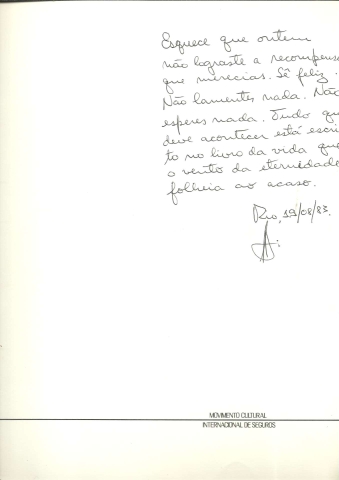 Esquece que ontem
não lograste a recompensa
que merecias. Sê feliz.
Não lamentes nada. Não
esperes nada. Tudo que
deve acontecer está escri
to no livro da vida que
o vento da eternidade
folheia ao acaso.
Rio, 19/08/83.
MOVIMENTO CULTURAL
INTERNACIONAL DE SEGUROS